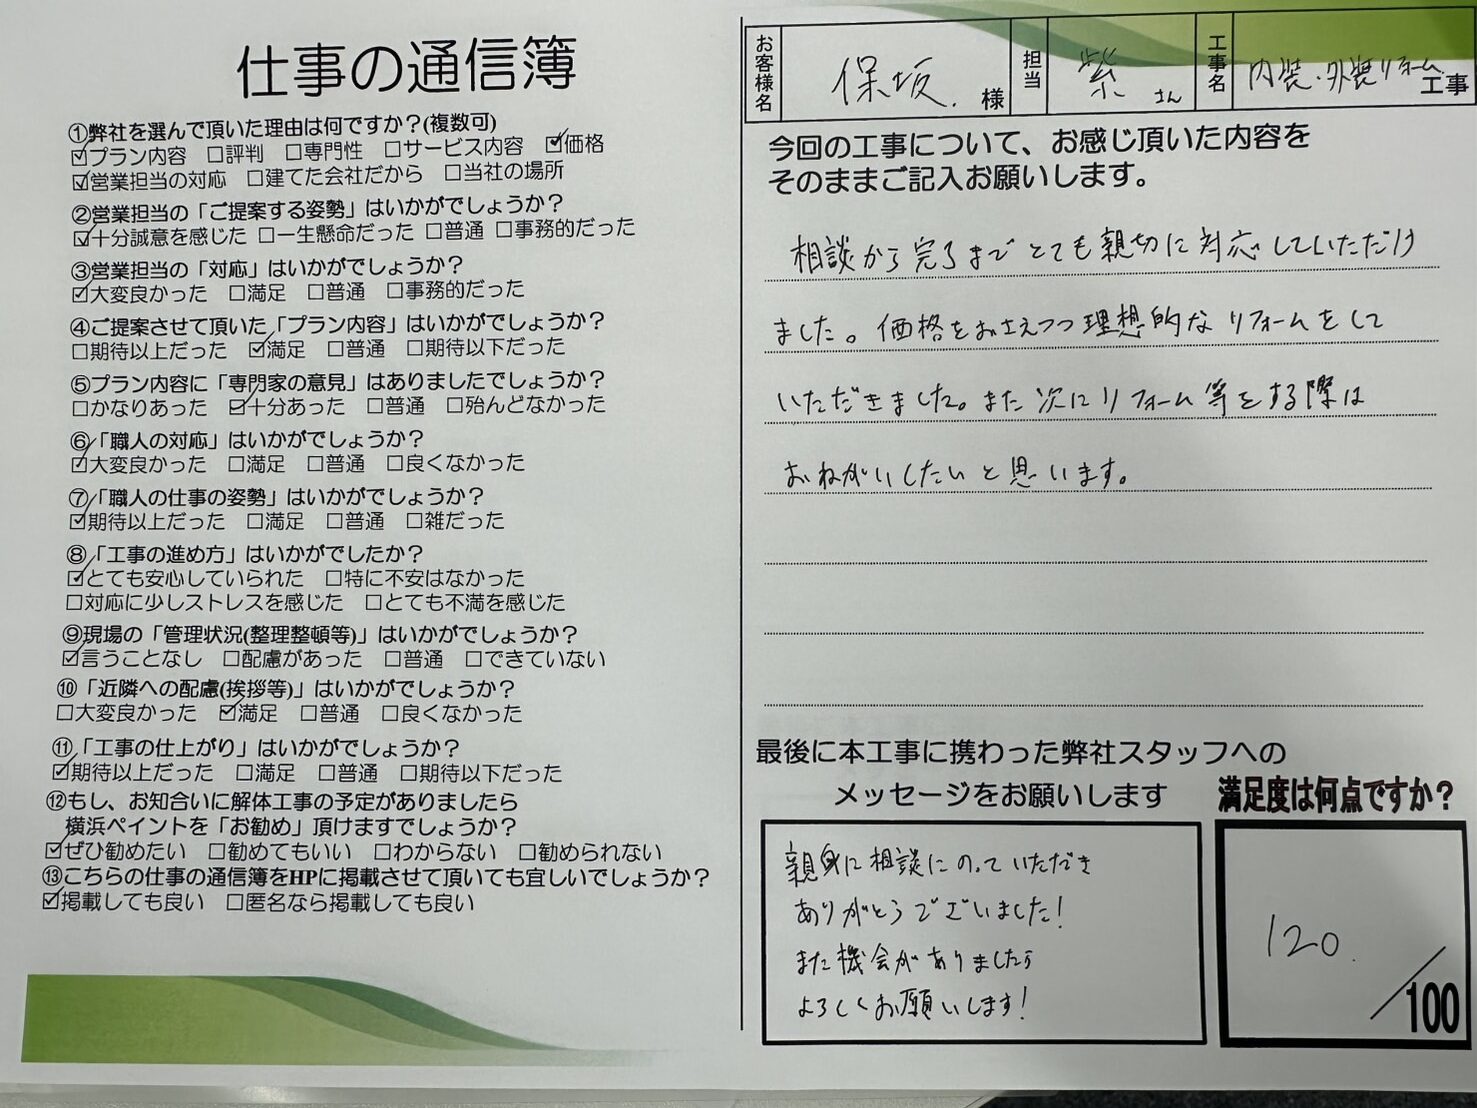 仕事の通信簿
①弊社を選んで頂いた理由は何ですか？(複数可)
☑プラン内容 □評判 □専門性 □サービス内容 ☑価格
☑営業担当の対応 □建てた会社だから □当社の場所
②営業担当の「ご提案する姿勢」はいかがでしょうか？
☑十分誠意を感じた □一生懸命だった □普通 □事務的だった
③営業担当の「対応」はいかがでしょうか？
☑大変良かった □満足 □普通 □事務的だった
④ご提案させて頂いた「プラン内容」はいかがでしょうか？
□期待以上だった ☑満足 □普通 □期待以下だった
⑤プラン内容に「専門家の意見」はありましたでしょうか？
□かなりあった ☑十分あった □普通 □殆んどなかった
⑥「職人の対応」はいかがでしょうか？
☑大変良かった □満足 □普通 □良くなかった
⑦「職人の仕事の姿勢」はいかがでしょうか？
☑期待以上だった □満足 □普通 □雑だった
⑧「工事の進め方」はいかがでしたか？
☑とても安心していられた □特に不安はなかった
□対応に少しストレスを感じた □とても不満を感じた
⑨現場の「管理状況(整理整頓等)」はいかがでしょうか？
☑言うことなし □配慮があった □普通 □できていない
⑩「近隣への配慮(挨拶等)」はいかがでしょうか？
□大変良かった ☑満足 □普通 □良くなかった
⑪「工事の仕上がり」はいかがでしょうか？
☑期待以上だった □満足 □普通 □期待以下だった
⑫もし、お知合いに解体工事の予定がありましたら
横浜ペイントを「お勧め」頂けますでしょうか？
☑ぜひ勧めたい □勧めてもいい □わからない □勧められない
⑬こちらの仕事の通信簿をHPに掲載させて頂いても宜しいでしょうか？
☑掲載しても良い □匿名なら掲載しても良い
お客様名 保坂. 様 担当 紫 さん 工事名 内装・外装リフォーム工事
今回の工事について、お感じ頂いた内容を
そのままご記入お願いします。
相談から完了までとても親切に対応していただけ
ました。価格をおさえつつ理想的なリフォームをして
いただきました。また次にリフォーム等をする際は
おねがいしたいと思います。
最後に本工事に携わった弊社スタッフへの
メッセージをお願いします
親身に相談にのっていただき
ありがとうございました！
また機会がありましたら
よろしくお願いします！
満足度は何点ですか？
120.
/100